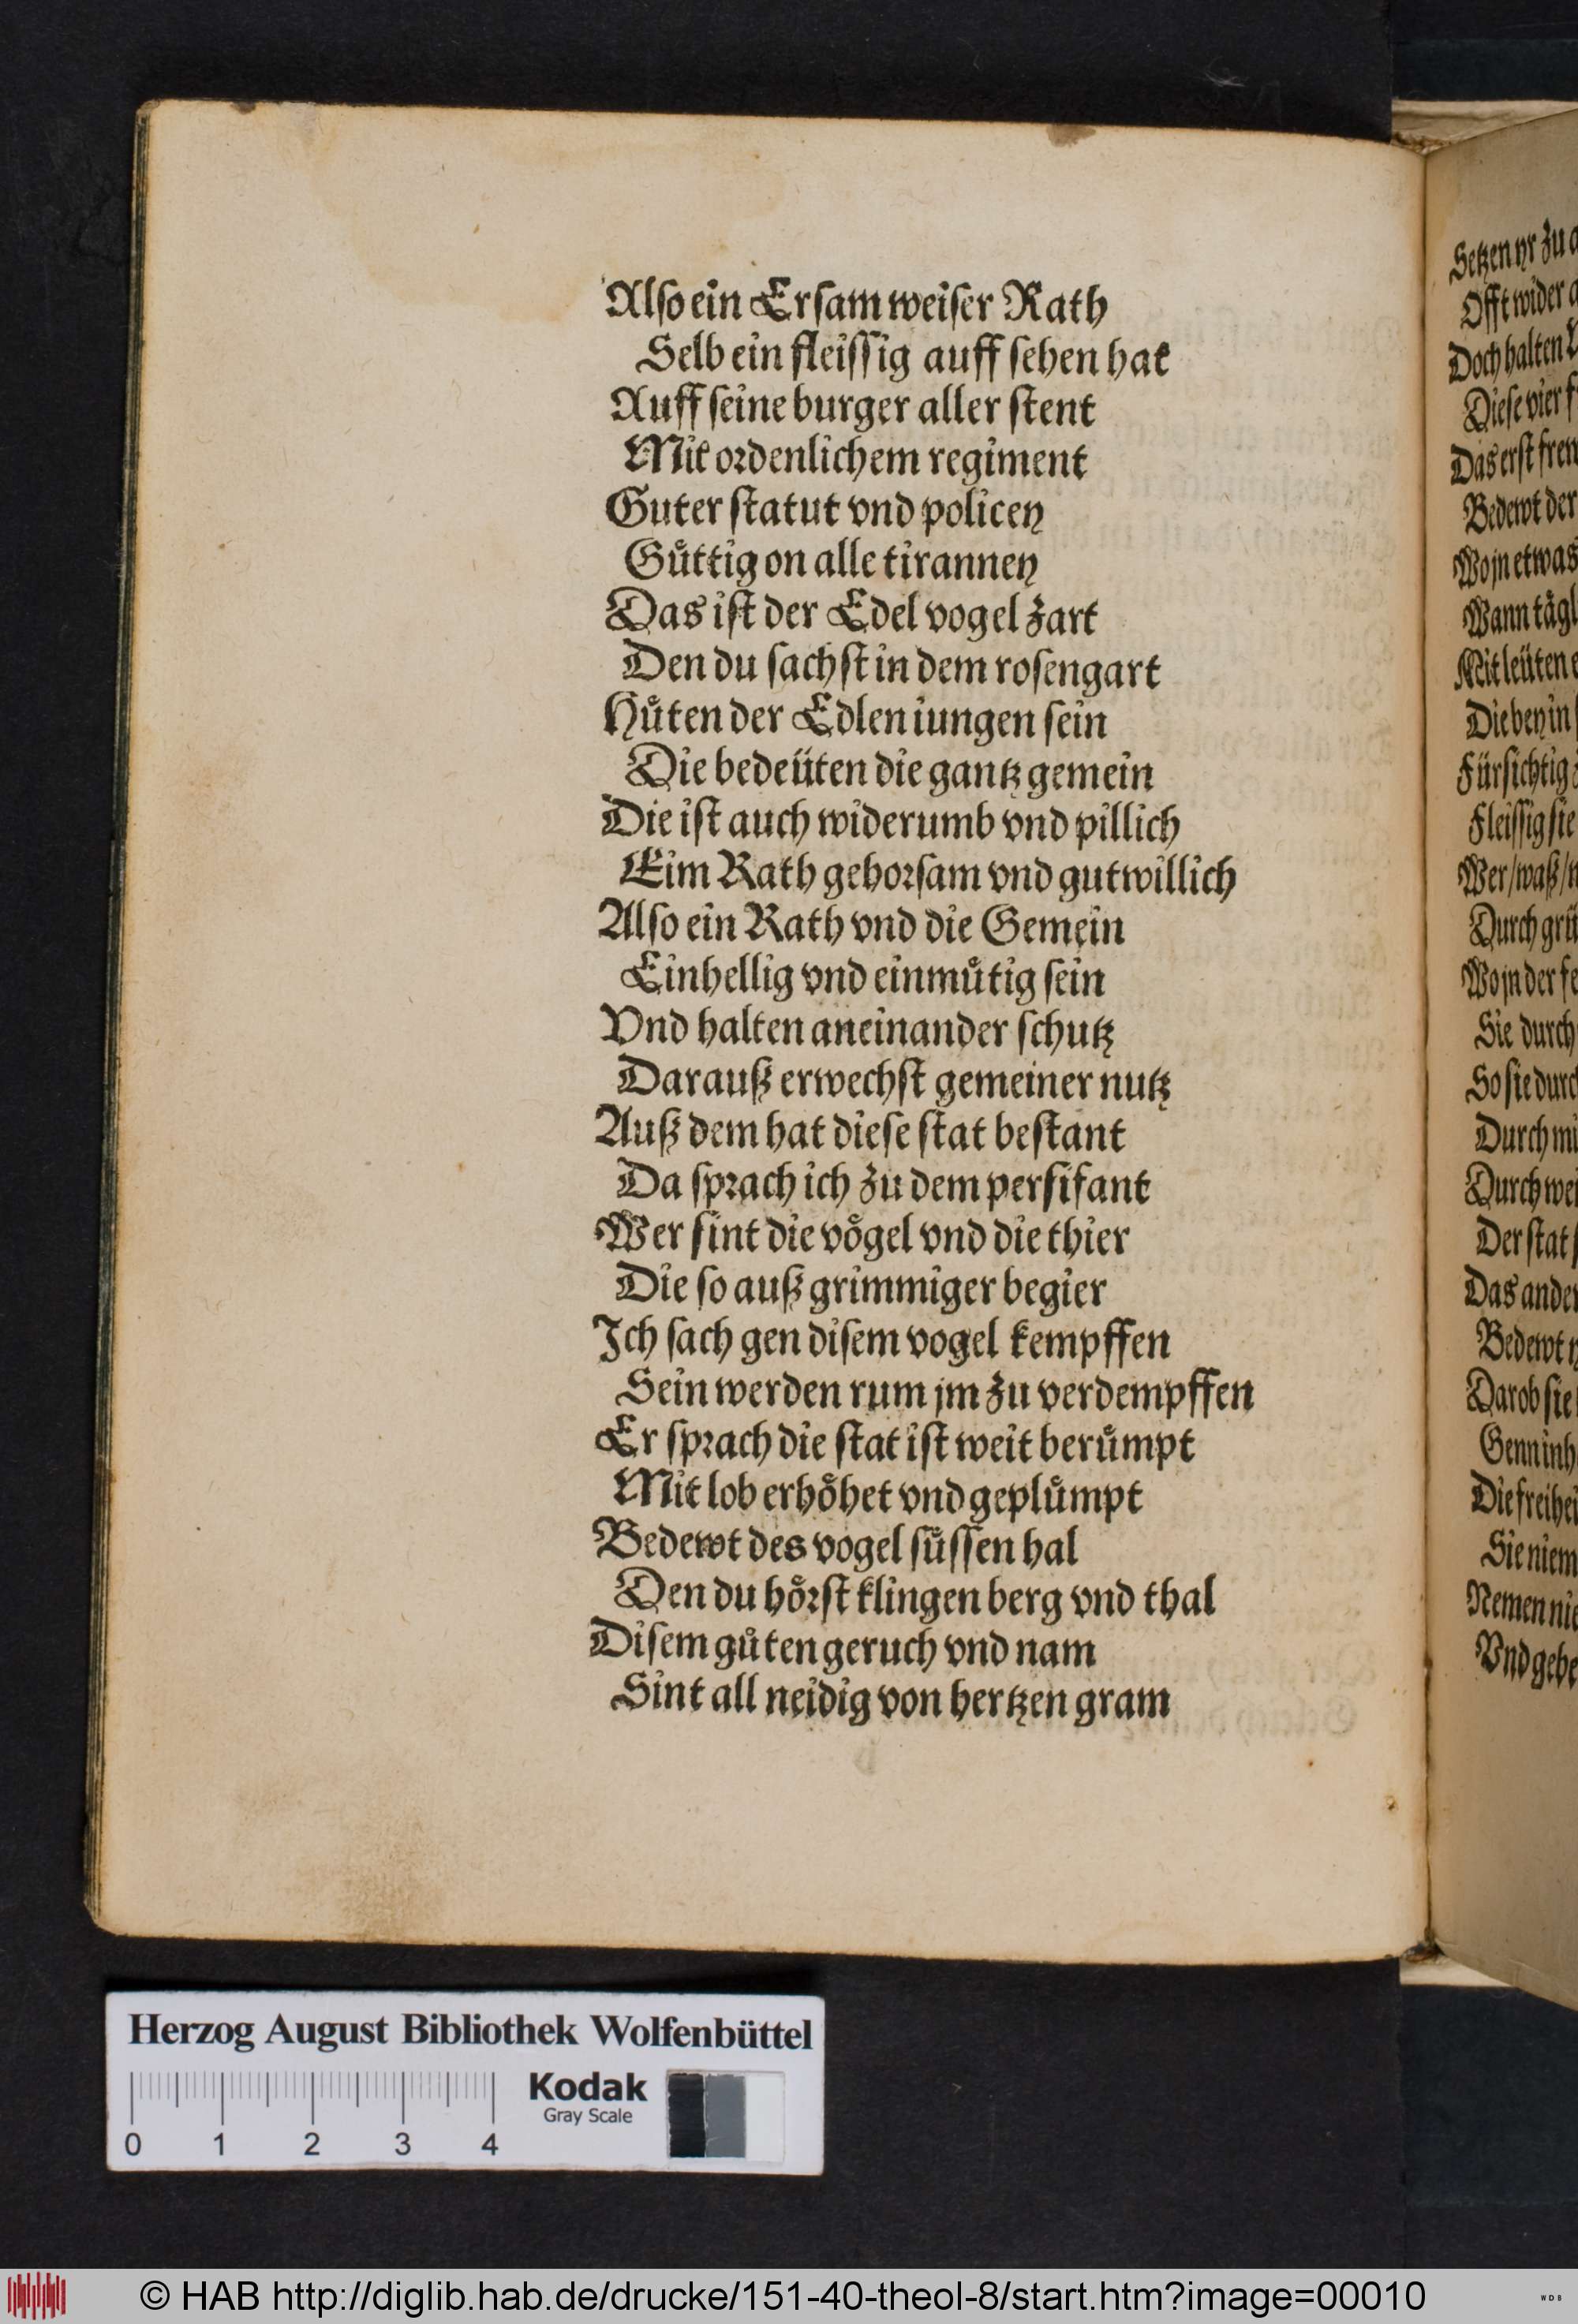 Alſo ein Erſam weiſer Rath
Selb ein fleiſſig auff ſehen hat
Auff ſeine burger aller ſtent
Mit ordenlichem regiment
Guter ſtatut vnd policey
Guͤttig on alle tiranney
Das iſt der Edel vogel zart
Den du ſachſt in dem roſengart
Huͤten der Edlen iungen ſein
Die bedeuͤten die gantz gemein
Die iſt auch widerumb vnd pillich
Eim Rath gehorſam vnd gutwillich
Alſo ein Rath vnd die Gemein
Einhellig vnd einmuͤtig ſein
Vnd halten aneinander ſchutz
Darauß erwechſt gemeiner nutz
Auß dem hat dieſe ſtat beſtant
Da ſprach ich zu dem perſifant
Wer ſint die voͤgel vnd die thier
Die ſo auß grimmiger begier
Ich ſach gen diſem vogel kempffen
Sein werden rum jm zu verdempffen
Er ſprach die ſtat iſt weit beruͤmpt
Mit lob erhoͤhet vnd gepluͤmpt
Bedewt des vogel ſuͤſſen hal
Den du hoͤrſt klingen berg vnd thal
Diſem guͤten geruch vnd nam
Sint all neidig von hertzen gram
Setzen yr zu
Offt wider
Doch halten
Dieſe vier
Das erſt
Bedewt der
Wo jn etwas
Wann
Nit leuͤten
Die bey in
Fürſichtig
Fleiſſig ſie
Wer / waß /
Durch
Wo jn der
Sie durch
So ſie
Durch
Durch
Der ſtat
Das
Bedewt
Darob ſie
Genn
Die
Sie
Nemen
Vnd
Herzog August Bibliothek Wolfenbüttel
Kodak
Gray Scale
0 1 2 3 4
© HAB http://diglib.hab.de/drucke/151-40-theol-8/start.htm?image=00010
WDB